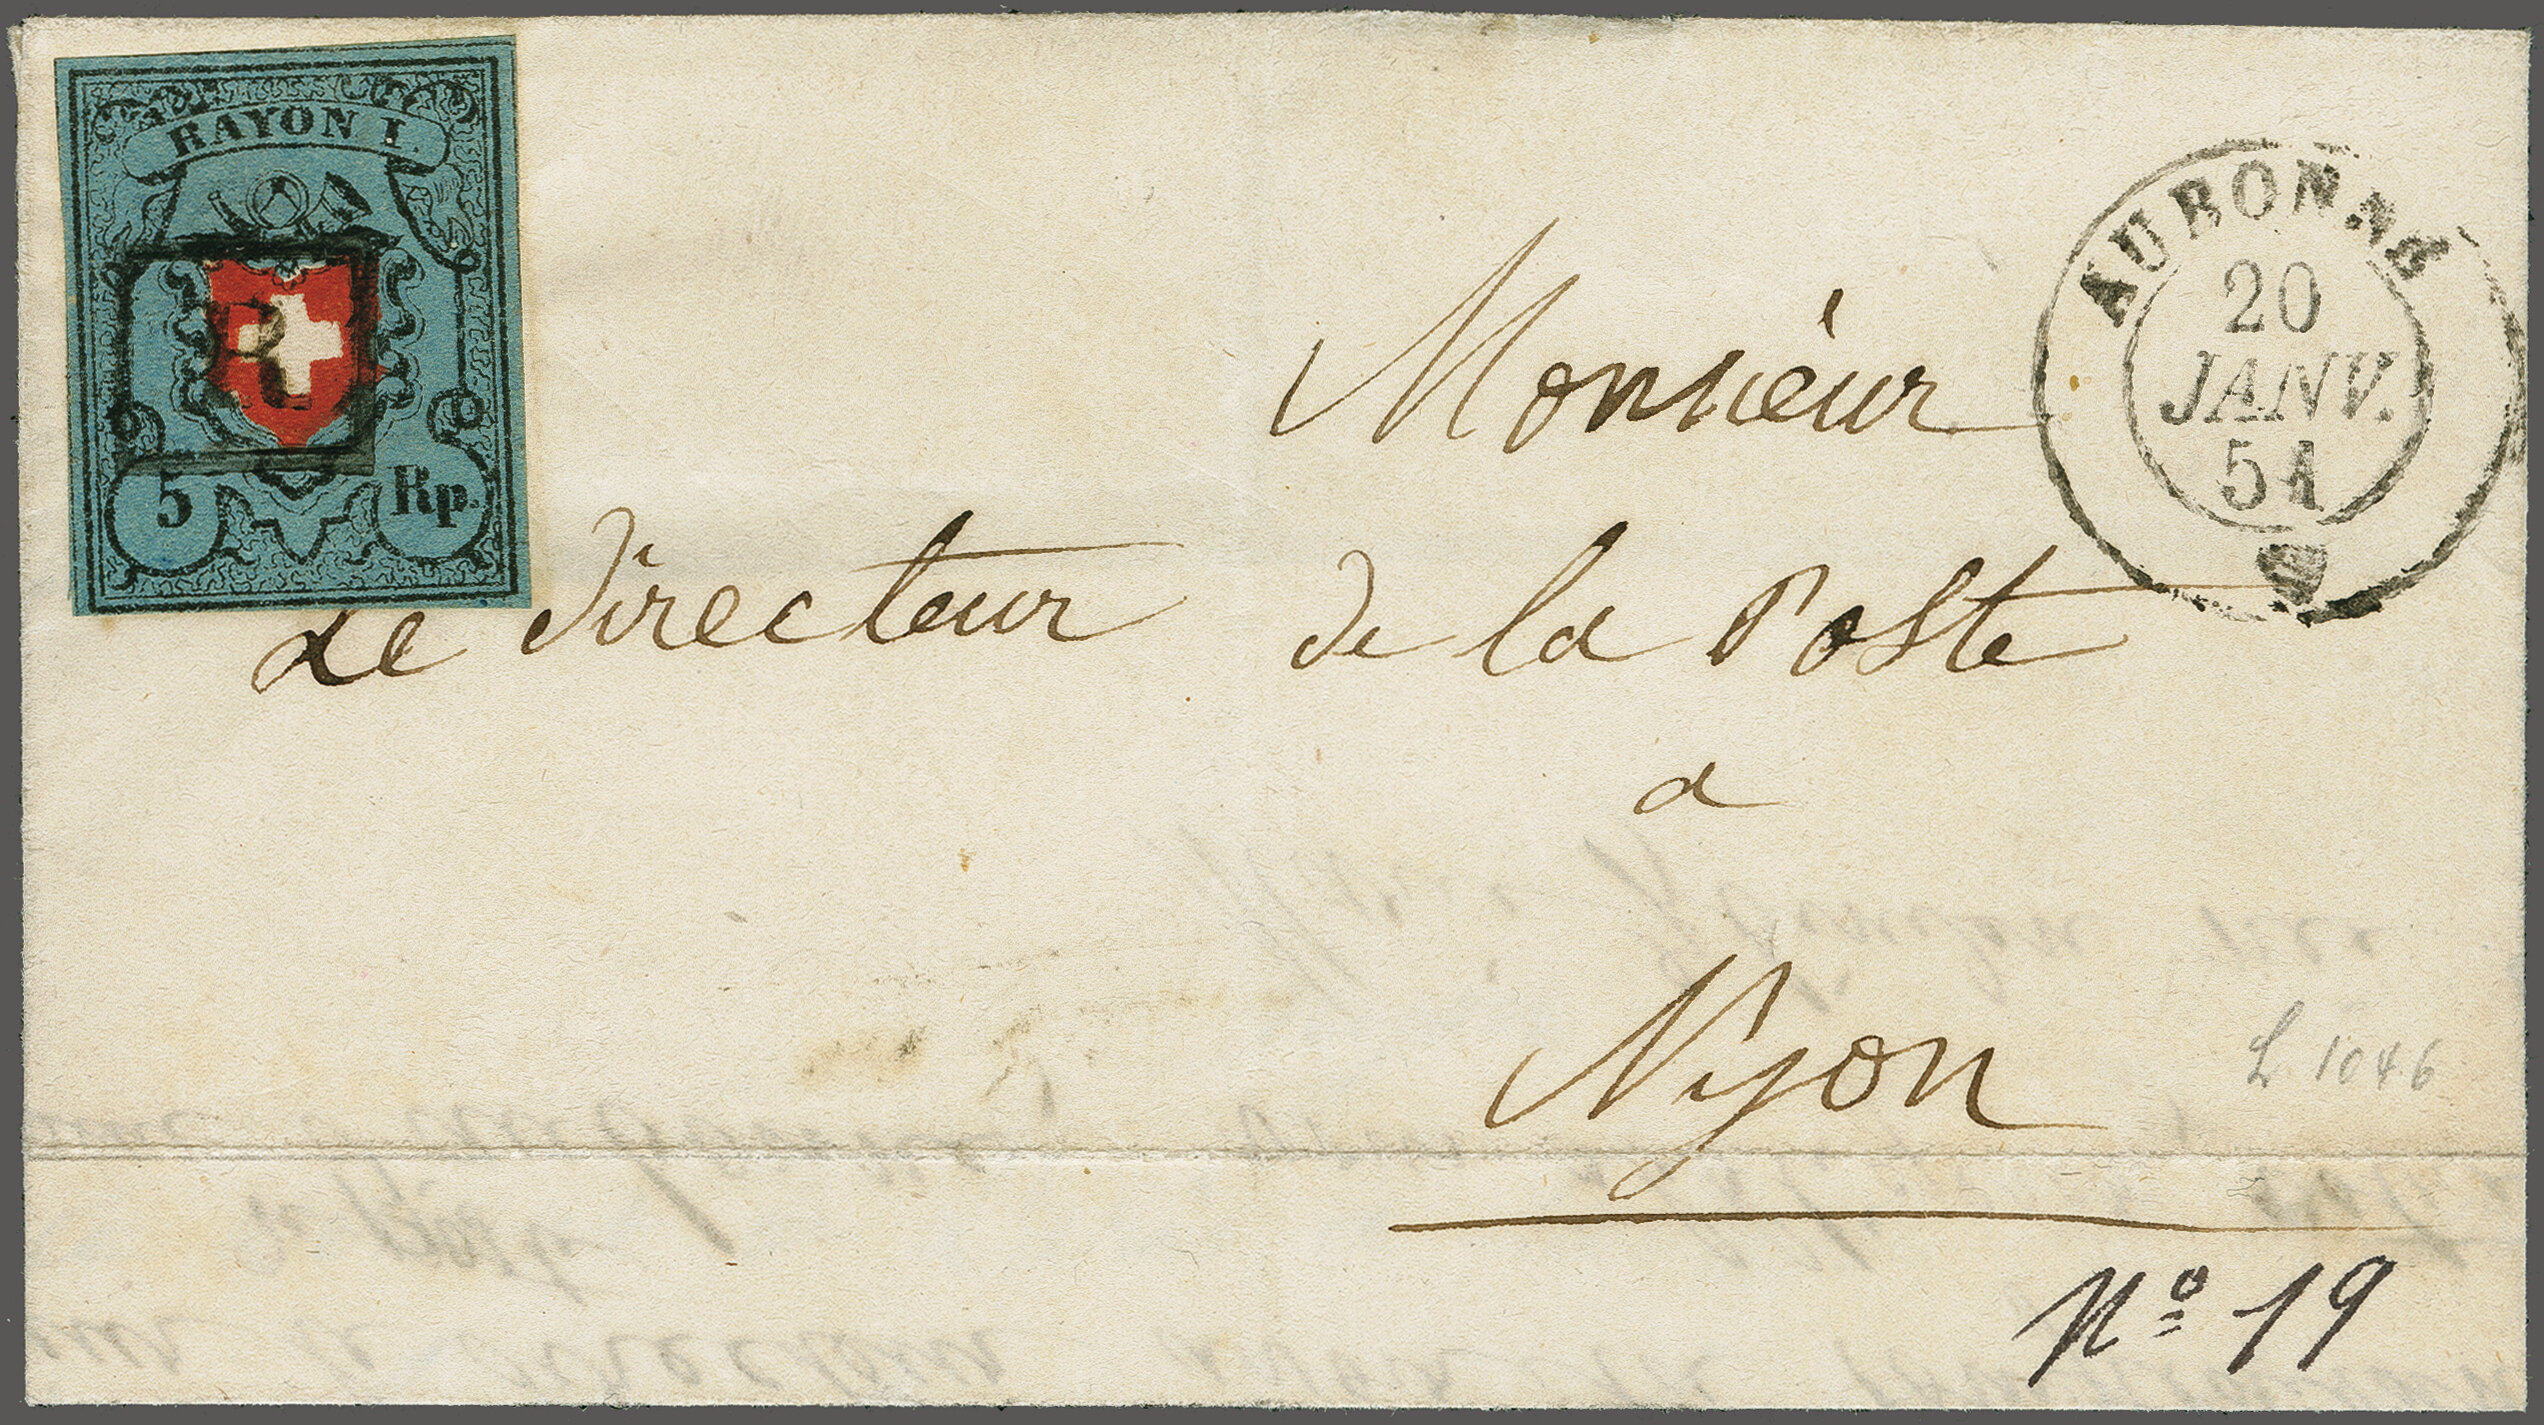 RAYON I.
R
5 Rp.
AUBONNE
20
JANV.
51
Monsieur
Le Directeur de la Poste
a
Nyon
L 1046
No 19